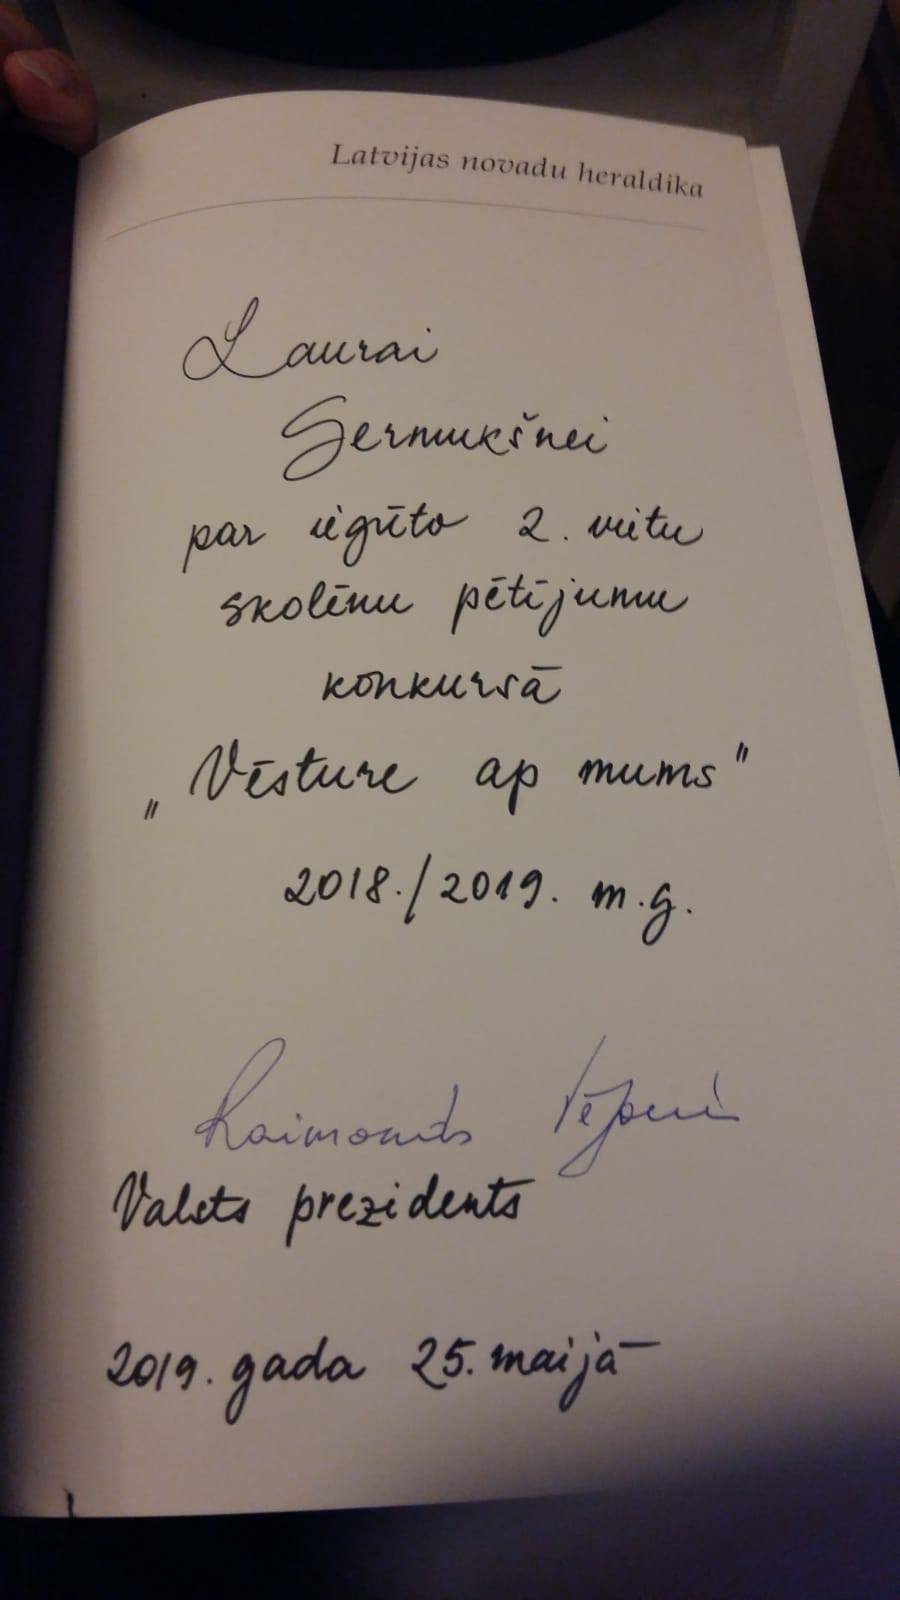 Latvijas novadu heraldika
Laurai
Germukšnei
par iegūto 2. vietu
skolēnu pētījumu
konkursā
„Vēsture ap mums"
2018./2019. m.g.
Raimonds Vējonis
Valsts prezidents
2019. gada 25. maijā